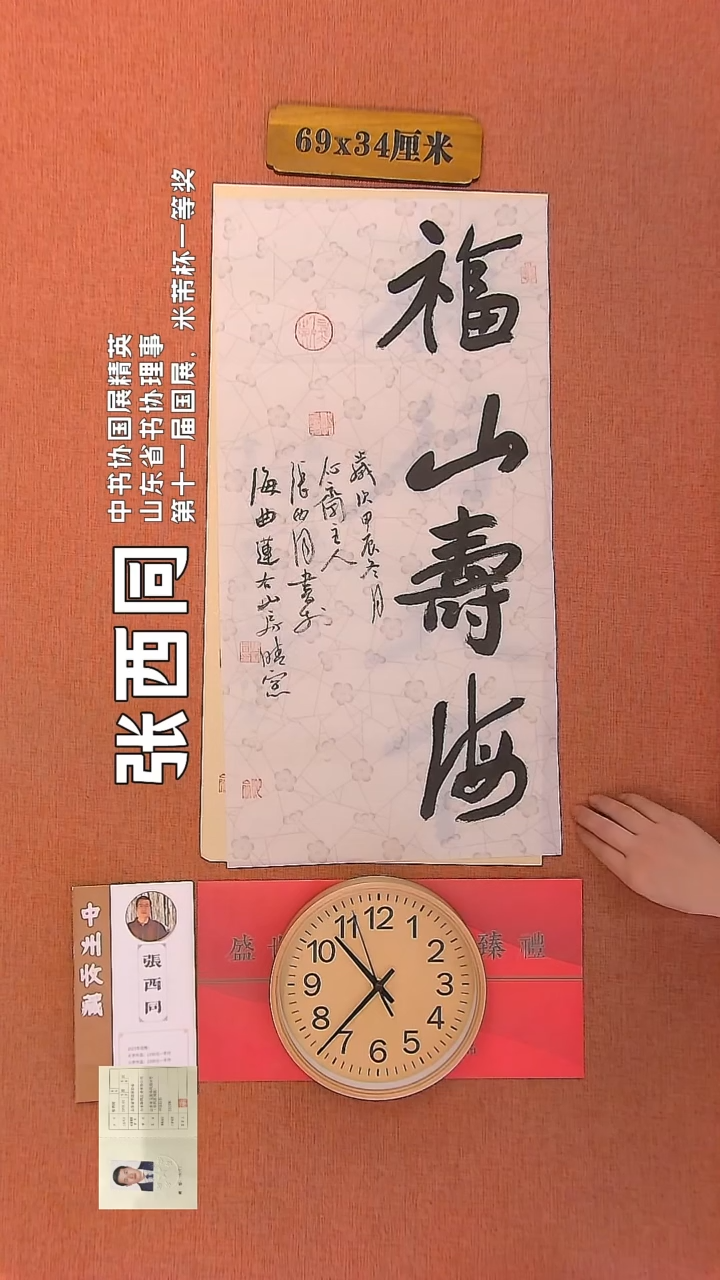 69x34厘米
福山壽海
歲次甲辰冬月
心齋主人
張西同書於
海曲蓮右山房晴窓
中书协国展精英
山东省书协理事
第十一届国展，米芾杯一等奖
张西同
張西同
盛世
臻禮
12
1
2
3
4
5
6
7
8
9
10
11